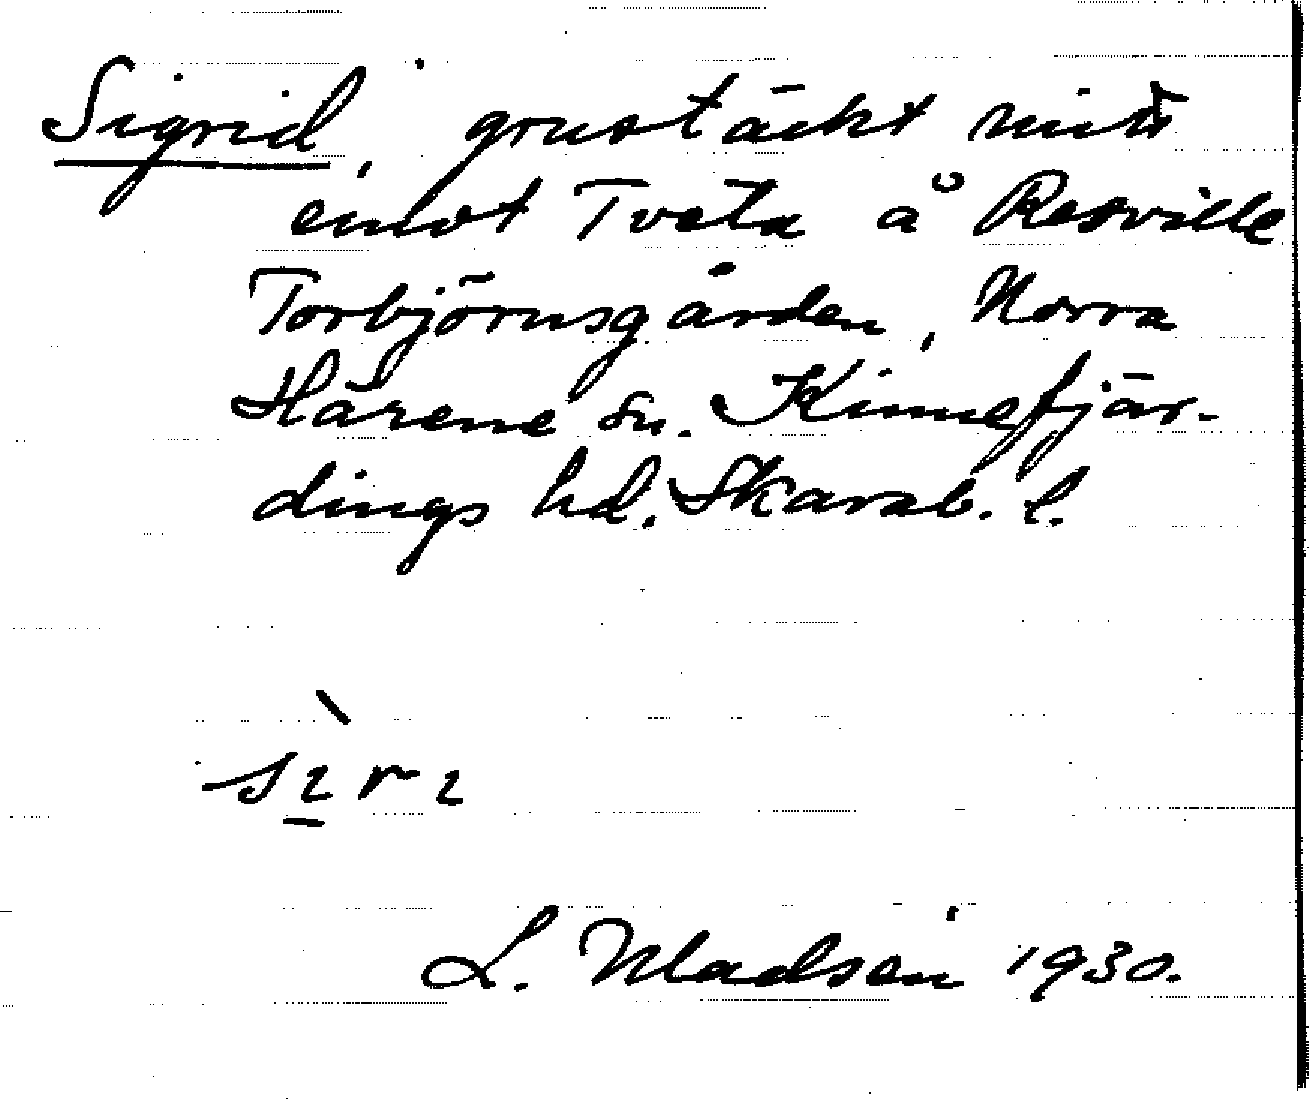 Sigrid, grustäckt mitt
emot Tveta å Resville
Torbjörnsgården, Norra
Härene sn. Kinnefjär-
dings hd. Skarab. l.
L. Madsén 1930.